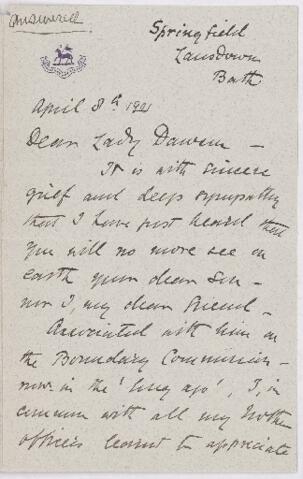 answered
Springfield
Lansdown
Bath
April 8th 1921
Dear Lady Dawson -
It is with sincere
grief and deep sympathy
that I have just heard that
you will no more see on
earth your dear Son -
nor I, my dear Friend -
Associated with him on
the Boundary Commission -
now in the 'long ago', I, in
common with all my brother
officers learnt to appreciate